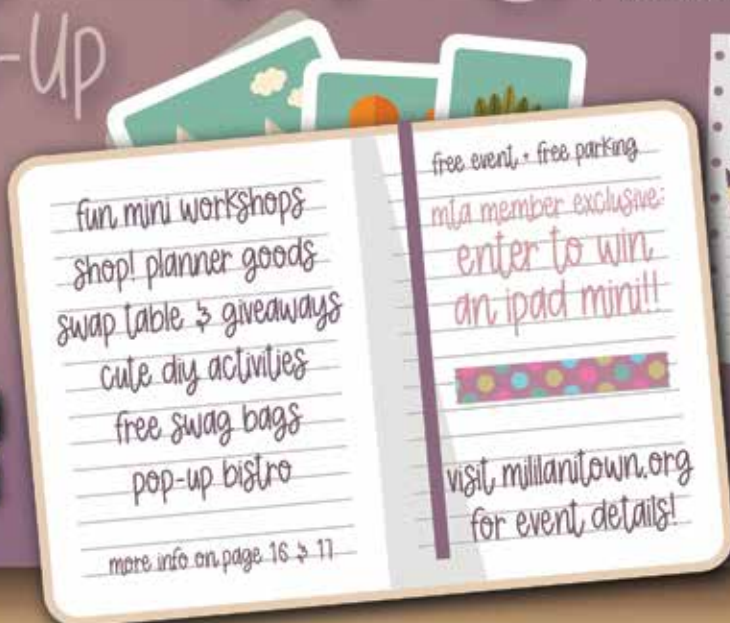 -Up
fun mini workshops
shop! planner goods
swap table & giveaways
cute diy activities
free swag bags
pop-up bistro
more info on page 16 & 17
free event + free parking
mta member exclusive:
enter to win
an ipad mini!!
visit mililanitown.org
for event details!